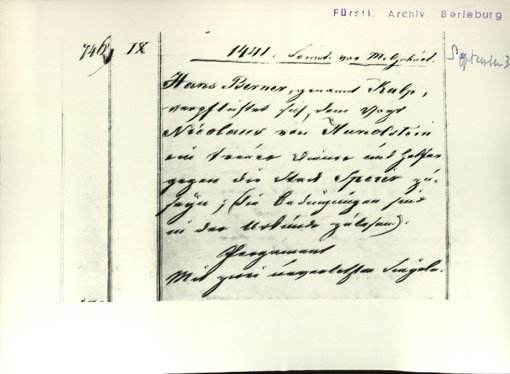 Fürstl. Archiv. Berleburg
746 IX
1441. Sonnt. vor M. Geburt.
September 3
Hans Berner, genannt Kalp,
verpflichtet sich, dem Vogt
Nicolaus von Hunolstein
ein treuer Diener und Helfer
gegen die Stadt Speier zu
seyn; (die Bedingungen sind
in der Urkunde zu lesen).
Pergament
Mit zwei unverletzten Siegeln.